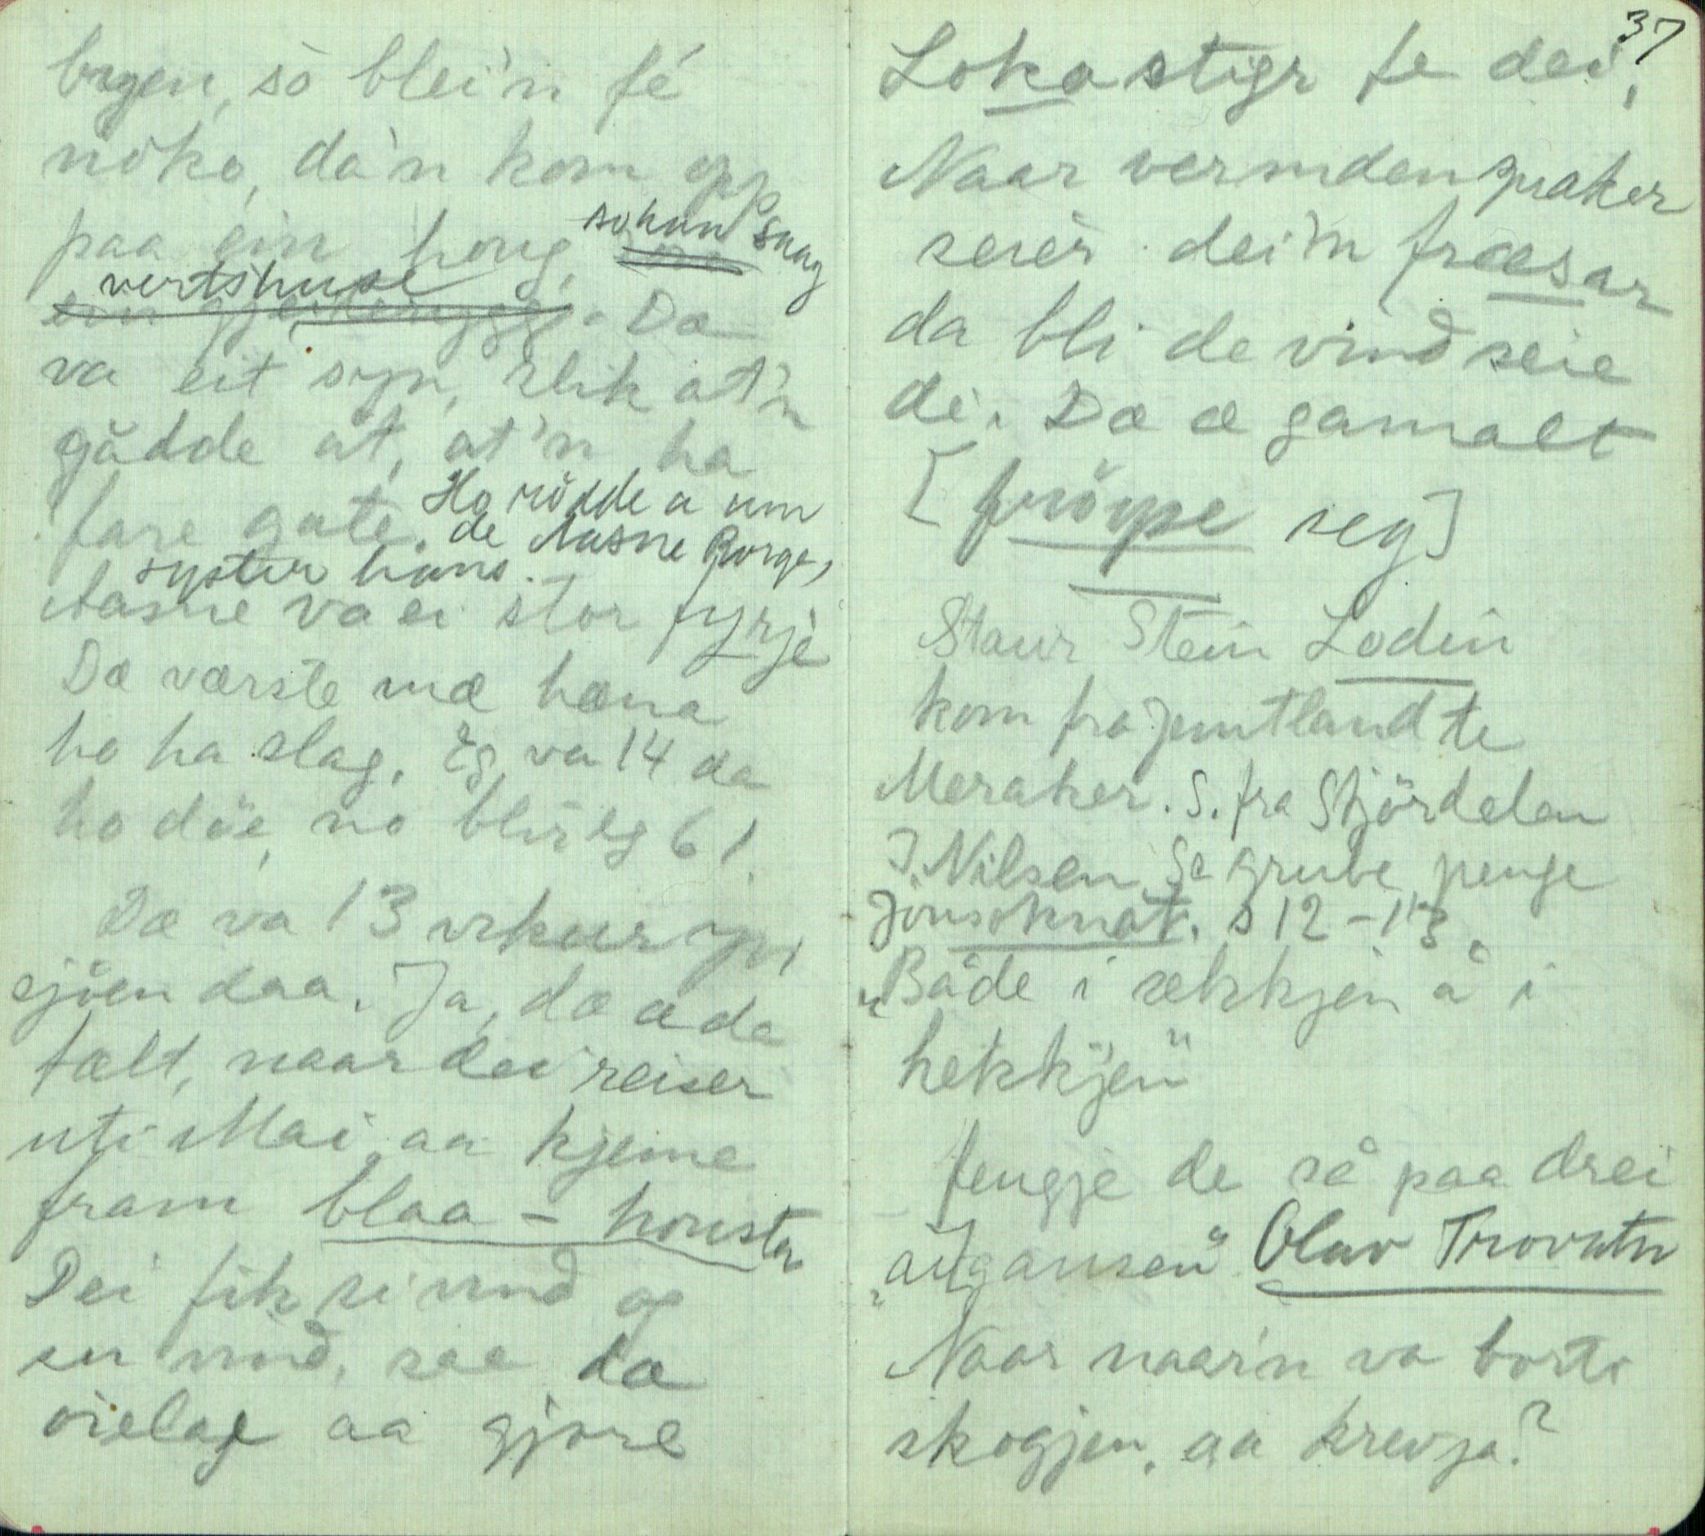 bygen, sò blei'n fé
nòko, da'n kom opp
paa ein houg, so han saag
vertshuse. Dæ
va eit syn, slik at'n
gådde at, at'n ha
fare gale. Ho rödde a um
de Aasne Borge,
syster hans.
Aasne va ei stor fyrje
Dæ værste mæ hæna
ho ha slag. Eg va 14 da
ho döe, no blir eg 61.
Dæ va 13 vikur
sjöen daa. Ja, dæ æ da
tælt, naar dei reiser
uti Mai aa kjeme
fram blaa - housten
Dei fik si vind og
sn vind, saa dæ
aa gjore
37
Lokastigr fe dei,
Naar vermden
seier dei'n fræsar
da bli de vind seie
dei. Dæ æ gamalt
[fnöype seg]
Staur Stein Lodin
kom fra Jemtland te
Meraker. S. fra Stjördelen
J. Nilsen Sa grube penge
Jonsoknat. s 12 - 13.
"Både i sekkjen å i
hekkjen"
fengje de så paa drei
Olav Trovatn
Naar naar'n va borti
skogjen, aa krevja?